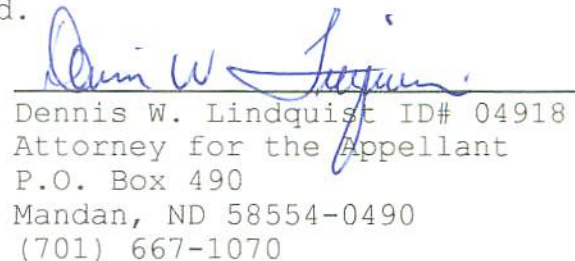 d.
Dennis W. Lindquist ID# 04918
Attorney for the Appellant
P.O. Box 490
Mandan, ND 58554-0490
(701) 667-1070